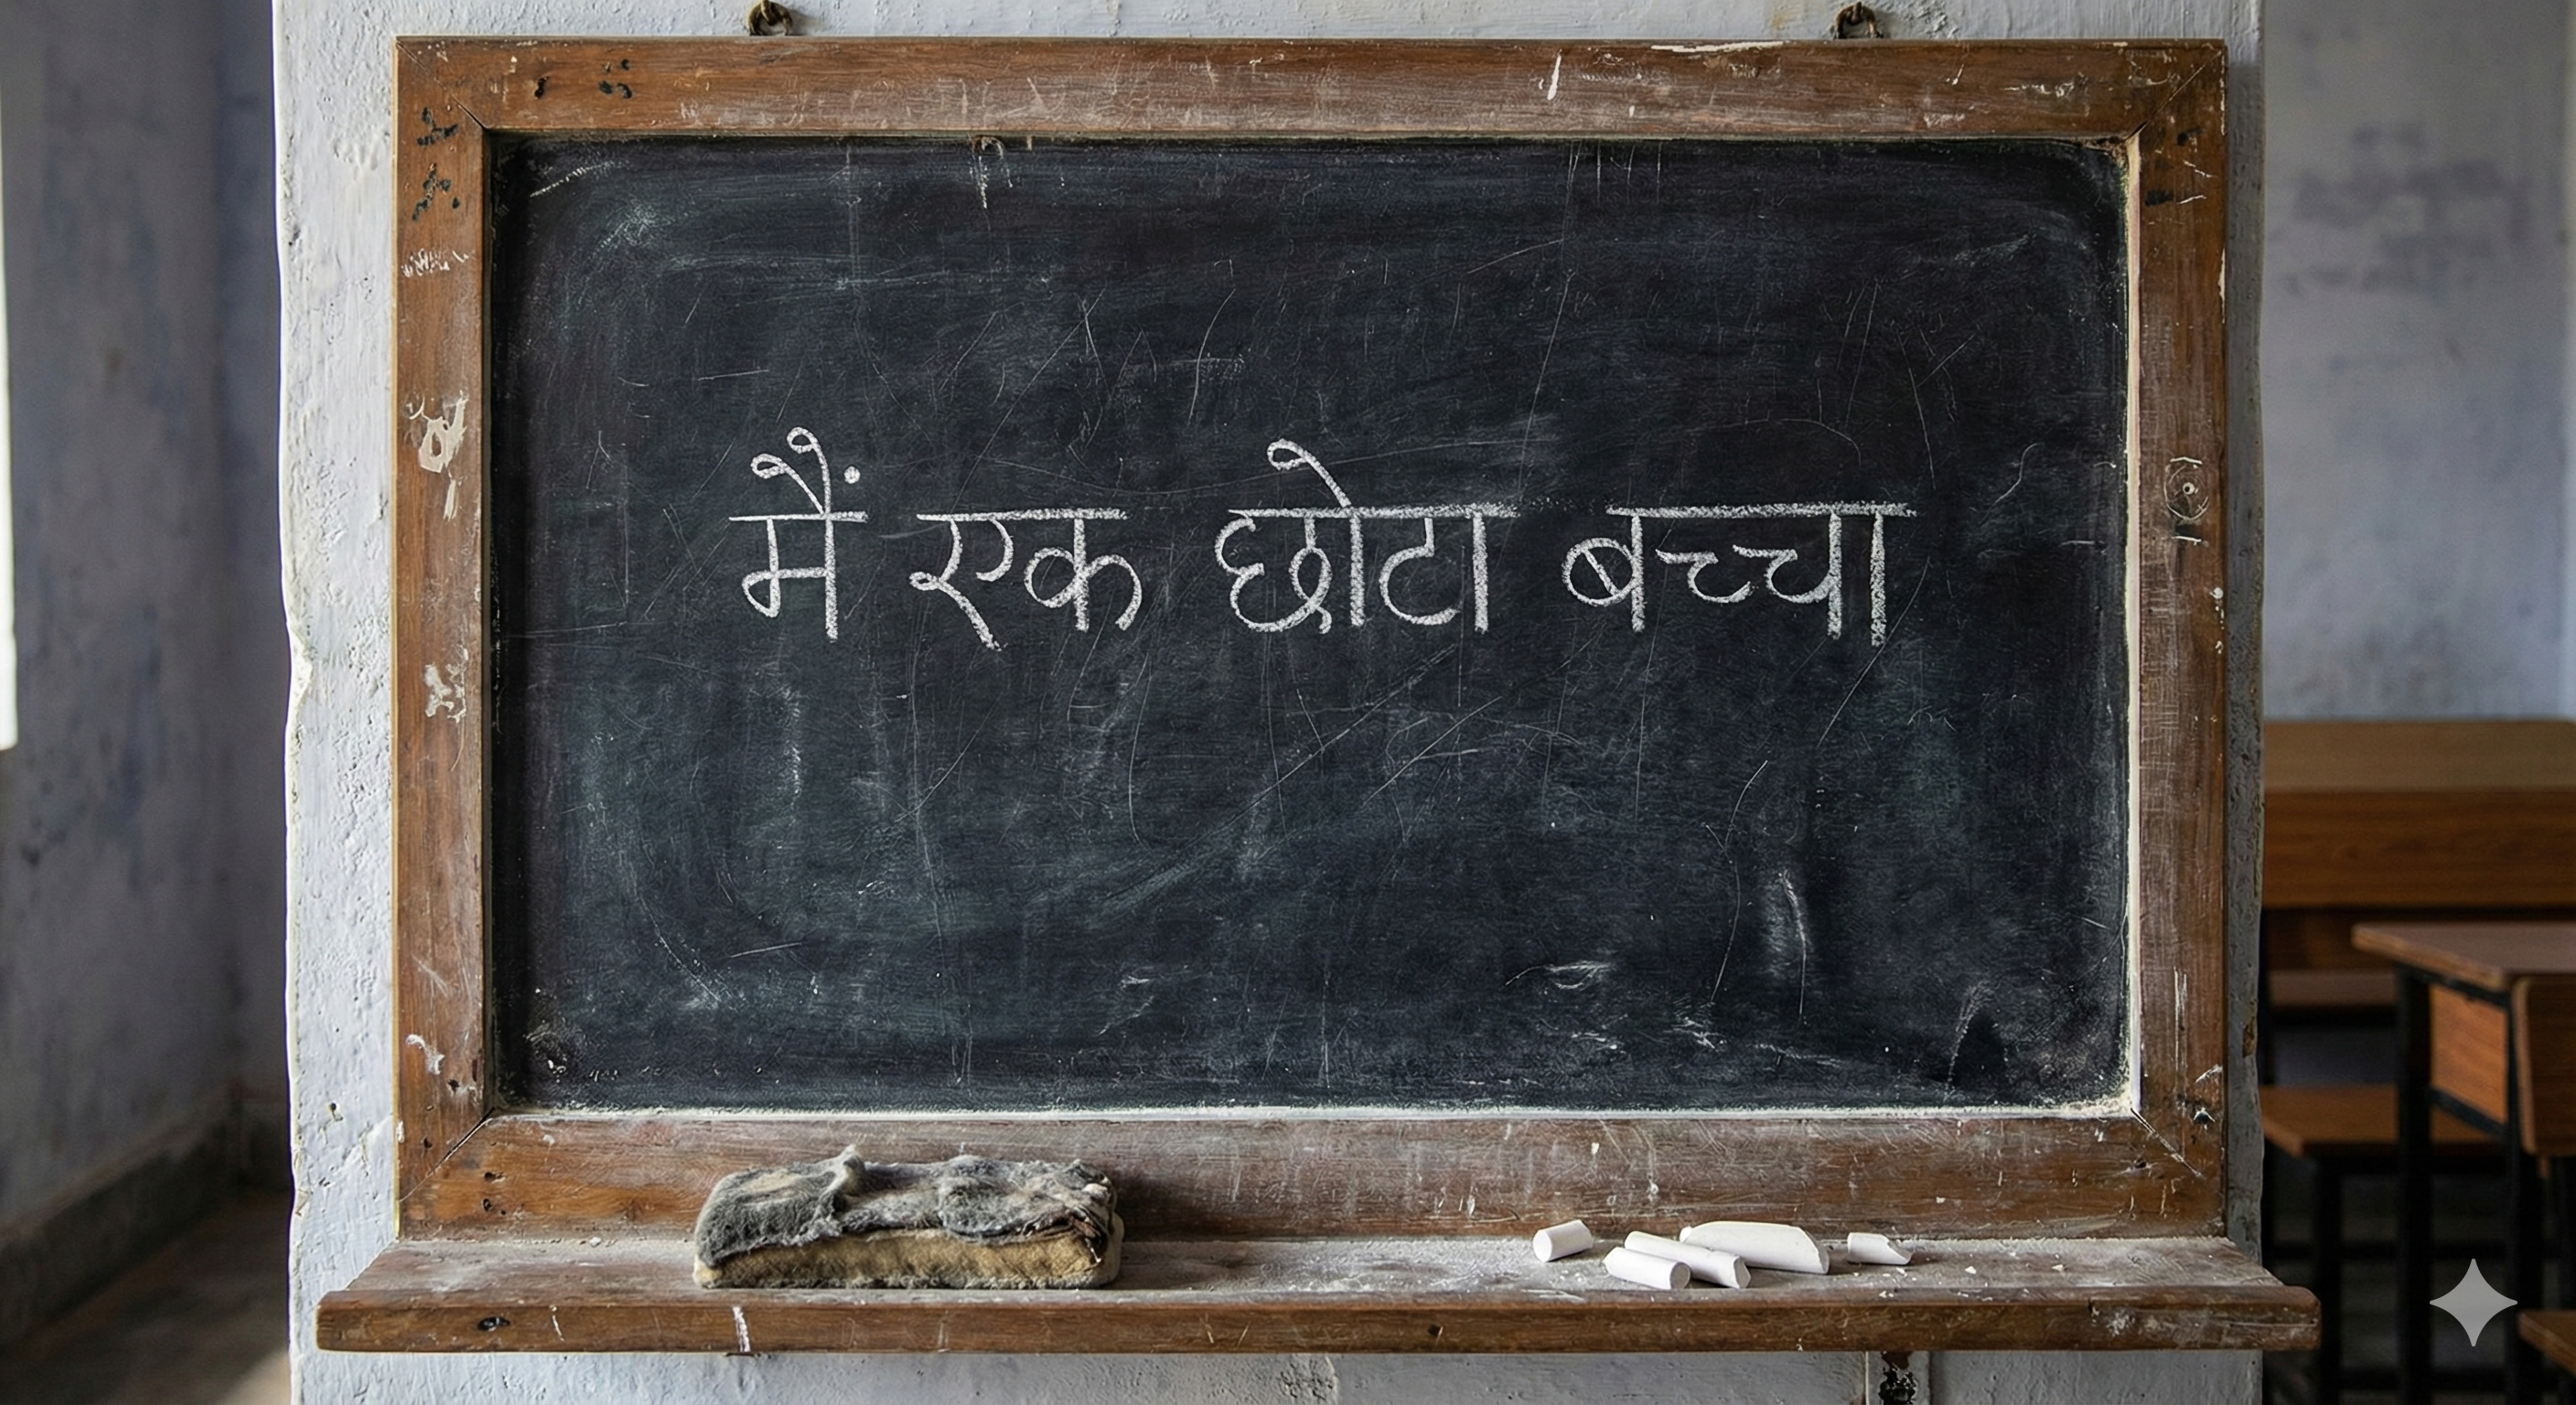 मैं एक छोटा बच्चा